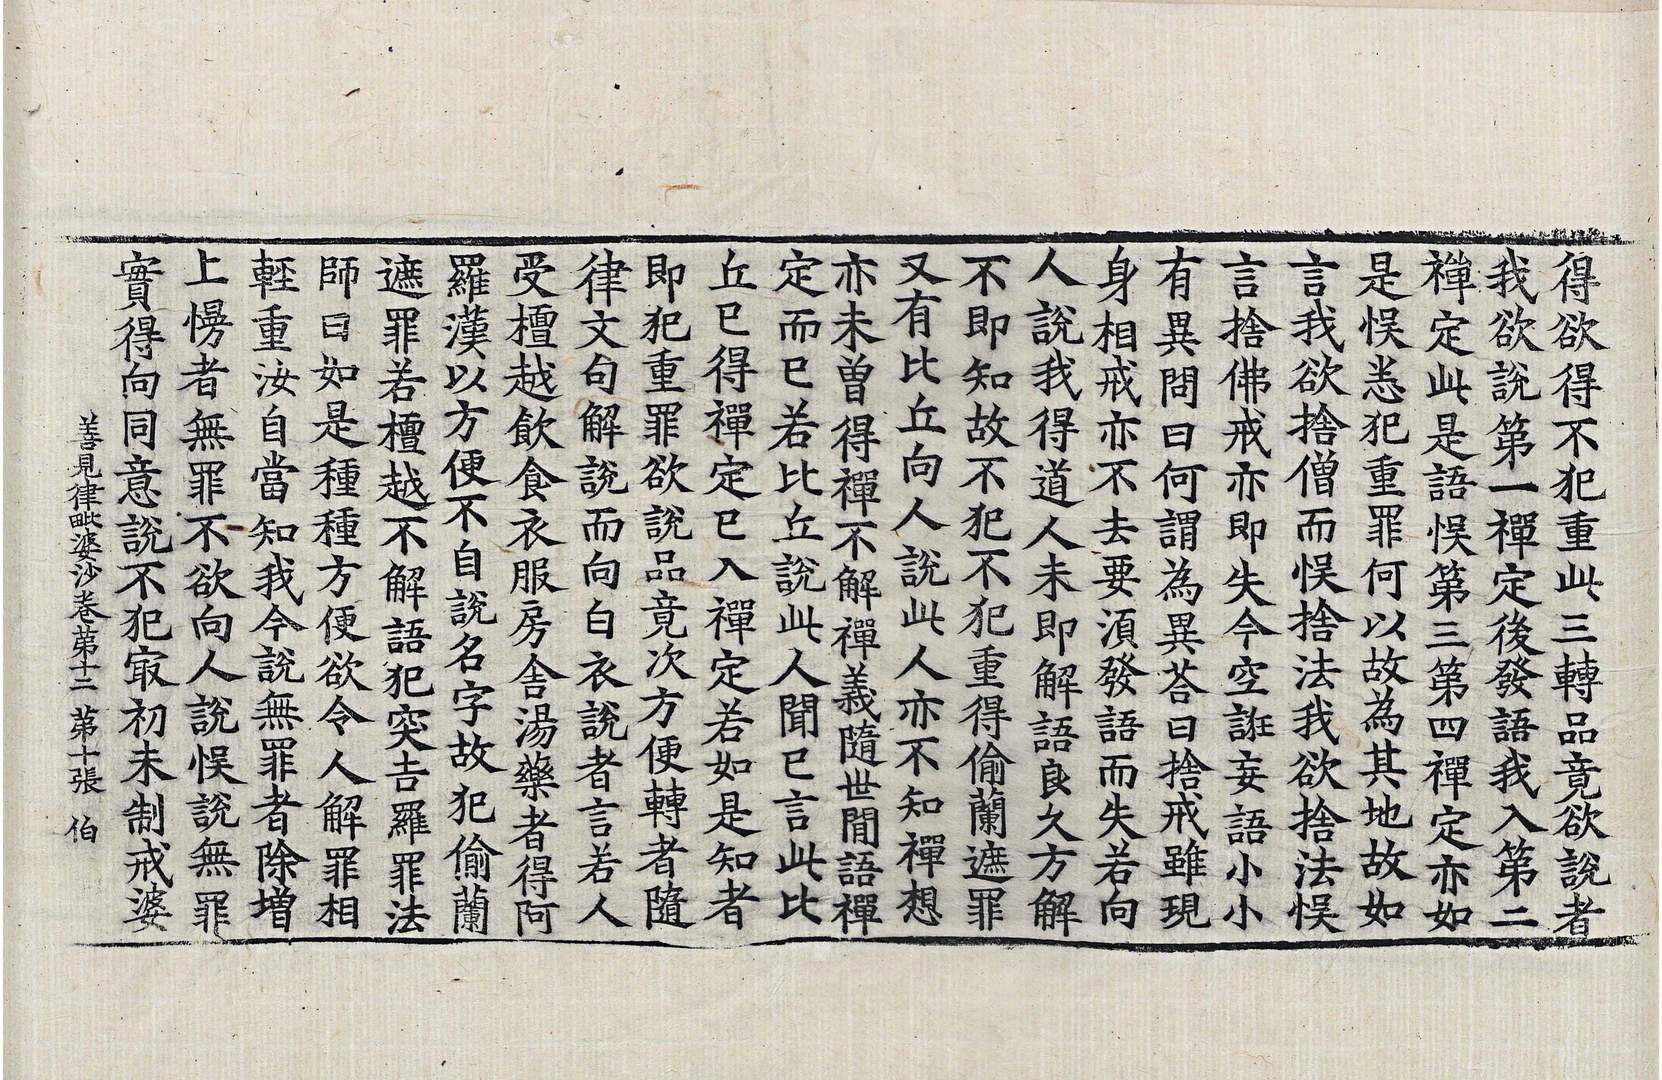 得欲得不犯重此三轉品竟欲說者
我欲說第一禪定後發語我入第二
禪定此是語悮第三第四禪定亦如
是悮悉犯重罪何以故為其地故如
言我欲捨僧而悮捨法我欲捨法悮
言捨佛戒亦即失今空誑妄語小小
有異問曰何謂為異荅曰捨戒雖現
身相戒亦不去要湏發語而失若向
人說我得道人未即解語良久方解
不即知故不犯不犯重得偷蘭遮罪
又有比丘向人說此人亦不知禪想
亦未曽得禪不解禪義隨世間語禪
定而已若比丘說此人聞已言此比
丘已得禪定已入禪定若如是知者
即犯重罪欲說品竟次方便轉者隨
律文句解說而向白衣說者言若人
受檀越飲食衣服房舍湯藥者得阿
羅漢以方便不自說名字故犯偷蘭
遮罪若檀越不解語犯突吉羅罪法
師曰如是種種方便欲令人解罪相
輕重汝自當知我今說無罪者除増
上慢者無罪不欲向人說悮說無罪
實得向同意說不犯㝡初未制戒婆
善見律毗婆沙卷苐十二 苐十張 伯